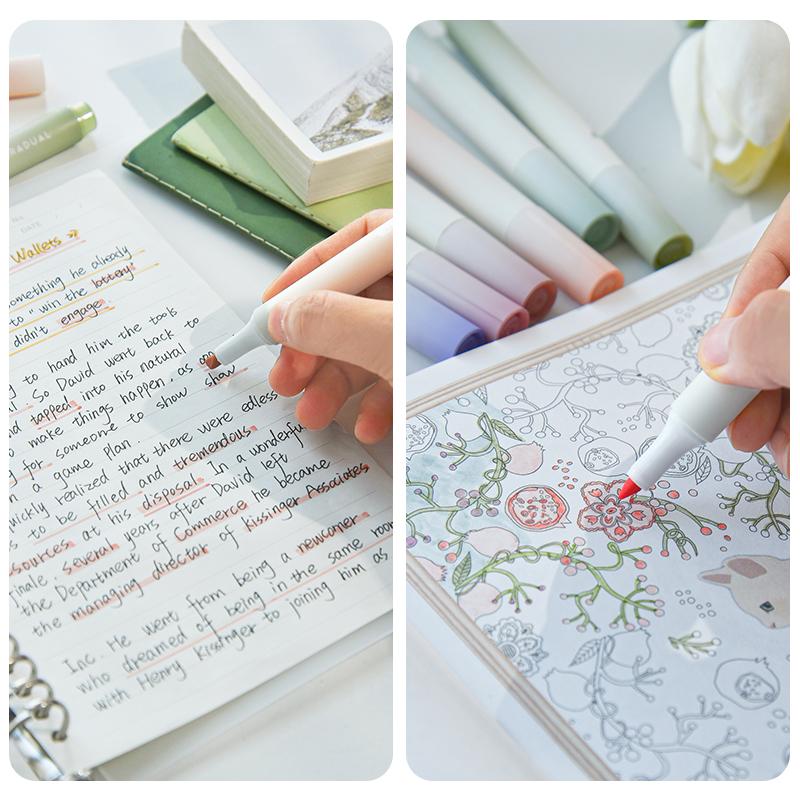 RADUAL
No.
DATE
Wallets
omething he already
to "win the lottery"
didn't engage
g to hand him the tools
. So David went back to
nd tapped into his natural
o make things happen, as opp
g for someone to show show
n a game plan.
uickly realized that there were edless
s to be filled and tremendous
sources at his disposal. In a wonderfu
inale, several years after David left
the Department of Commerce he became
the managing director of Kissinger Associates
Inc. He went from being a newcomer
who dreamed of being in the same room
with Henry Kissinger to joining him as